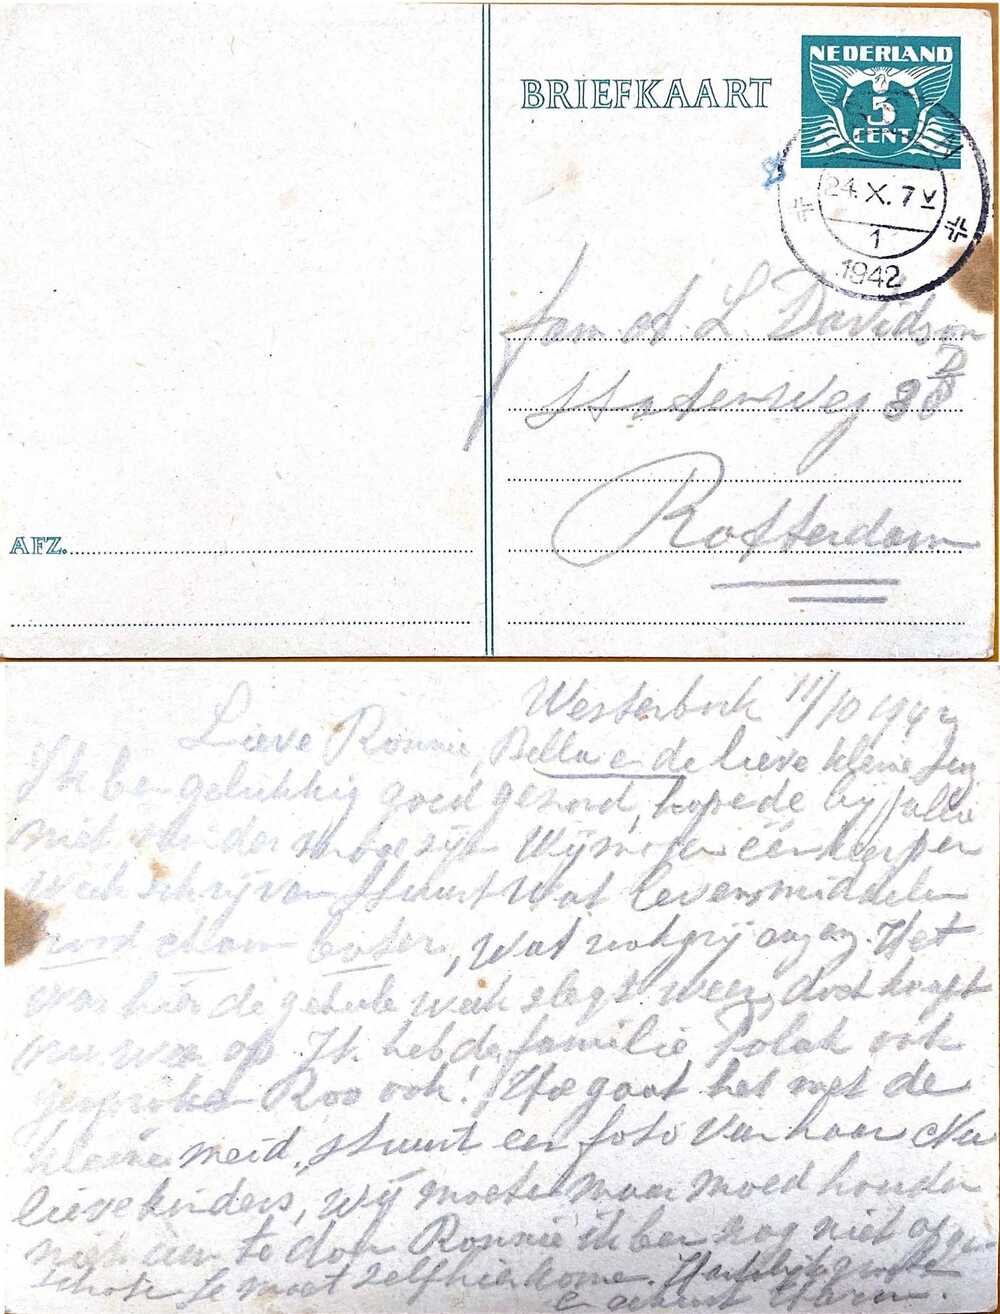 NEDERLAND
5
CENT
BRIEFKAART
24.X.7 V
1
1942
fam L Davidson
Rotterdam
AFZ.
Westerbork 11/10 1942
Lieve Ronnie, Bella en de lieve kleine
Ik ben gelukkig goed gezond, hopende bij jullie
niet minder Wij mogen één keer per
Week schrijven Stuurt Wat levensmiddelen
boter, Wat enz. Het
was hier de geheele week slegt weer, doch knapt
nu wee op Ik heb de familie Polak ook
gesproken Roo ook! Hoe gaat het met de
kleine meid, stuurt een foto van haar Nu
lieve kinders, wij moeten maar moed houden
niets aan te doen Ronnie ik ben nog niet
Je moet zelf hier kome. Hartelijk